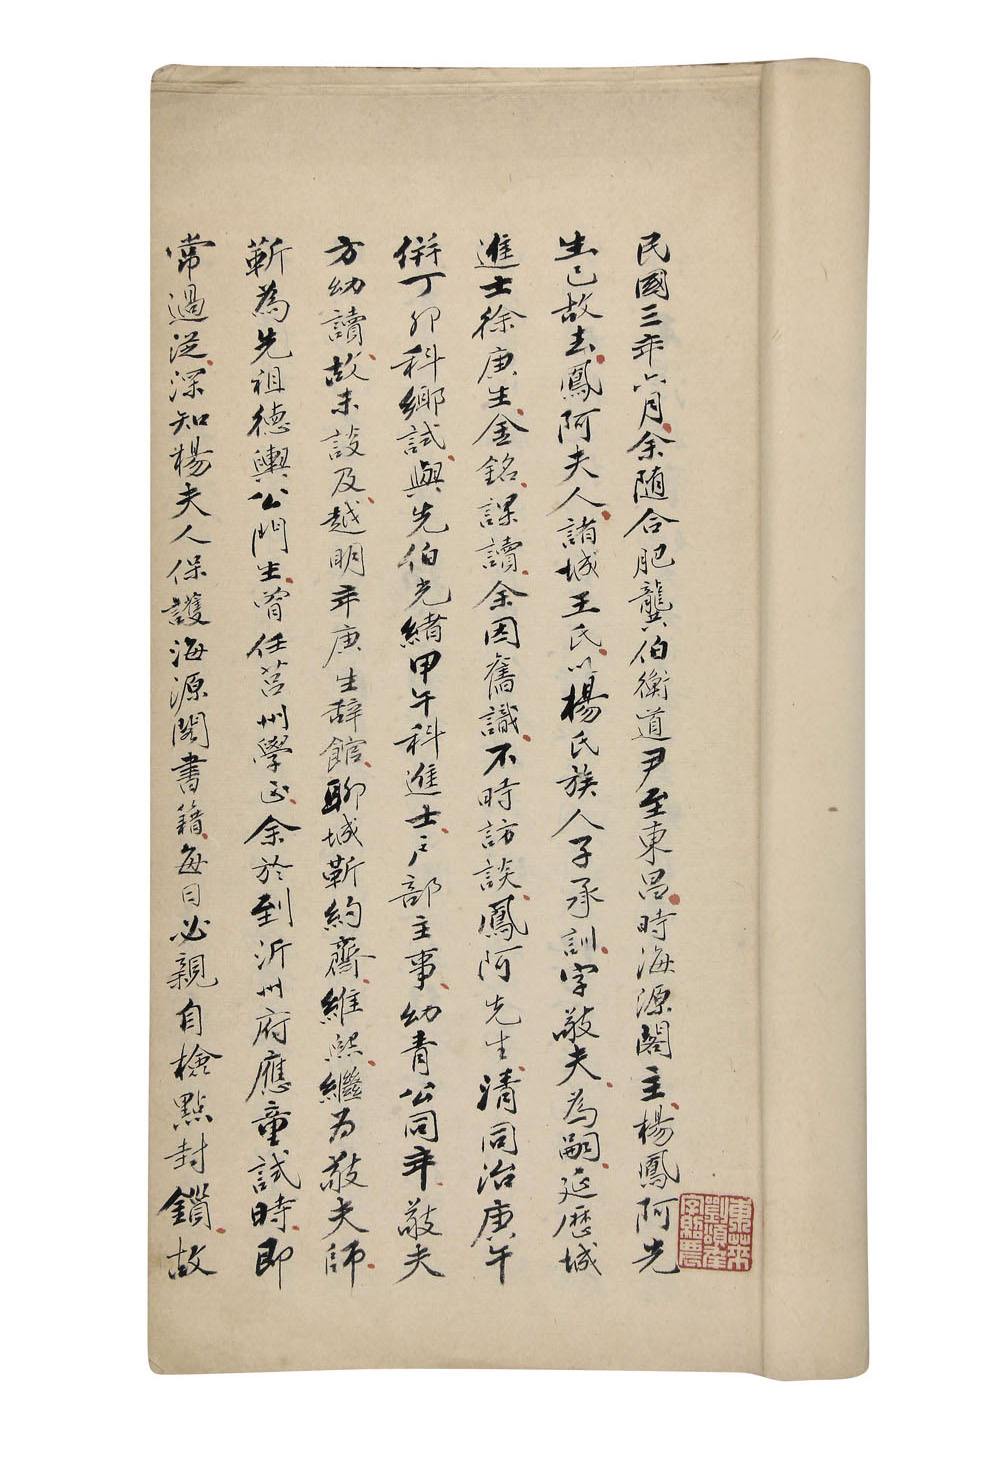 民國三年六月余随合肥龔伯衡道尹至東昌時海源閣主楊鳳阿先
生已故去鳳阿夫人諸城王氏以楊氏族人子承訓字敬夫為嗣延歷城
進士徐庚生金銘課讀余因舊識不時訪談鳳阿先生清同治庚午
併丁卯科鄉試與先伯光緒甲午科進士戶部主事幼青公同年敬夫
方幼讀故未談及越明年庚生辞館聊城靳約齋維熙繼为敬夫師
靳為先祖德輿公門生曾任莒州學正余於到沂州府應童試時即
常過從深知楊夫人保護海源閣書籍每日必親自檢點封鎖故
東萊
劉頌年
字